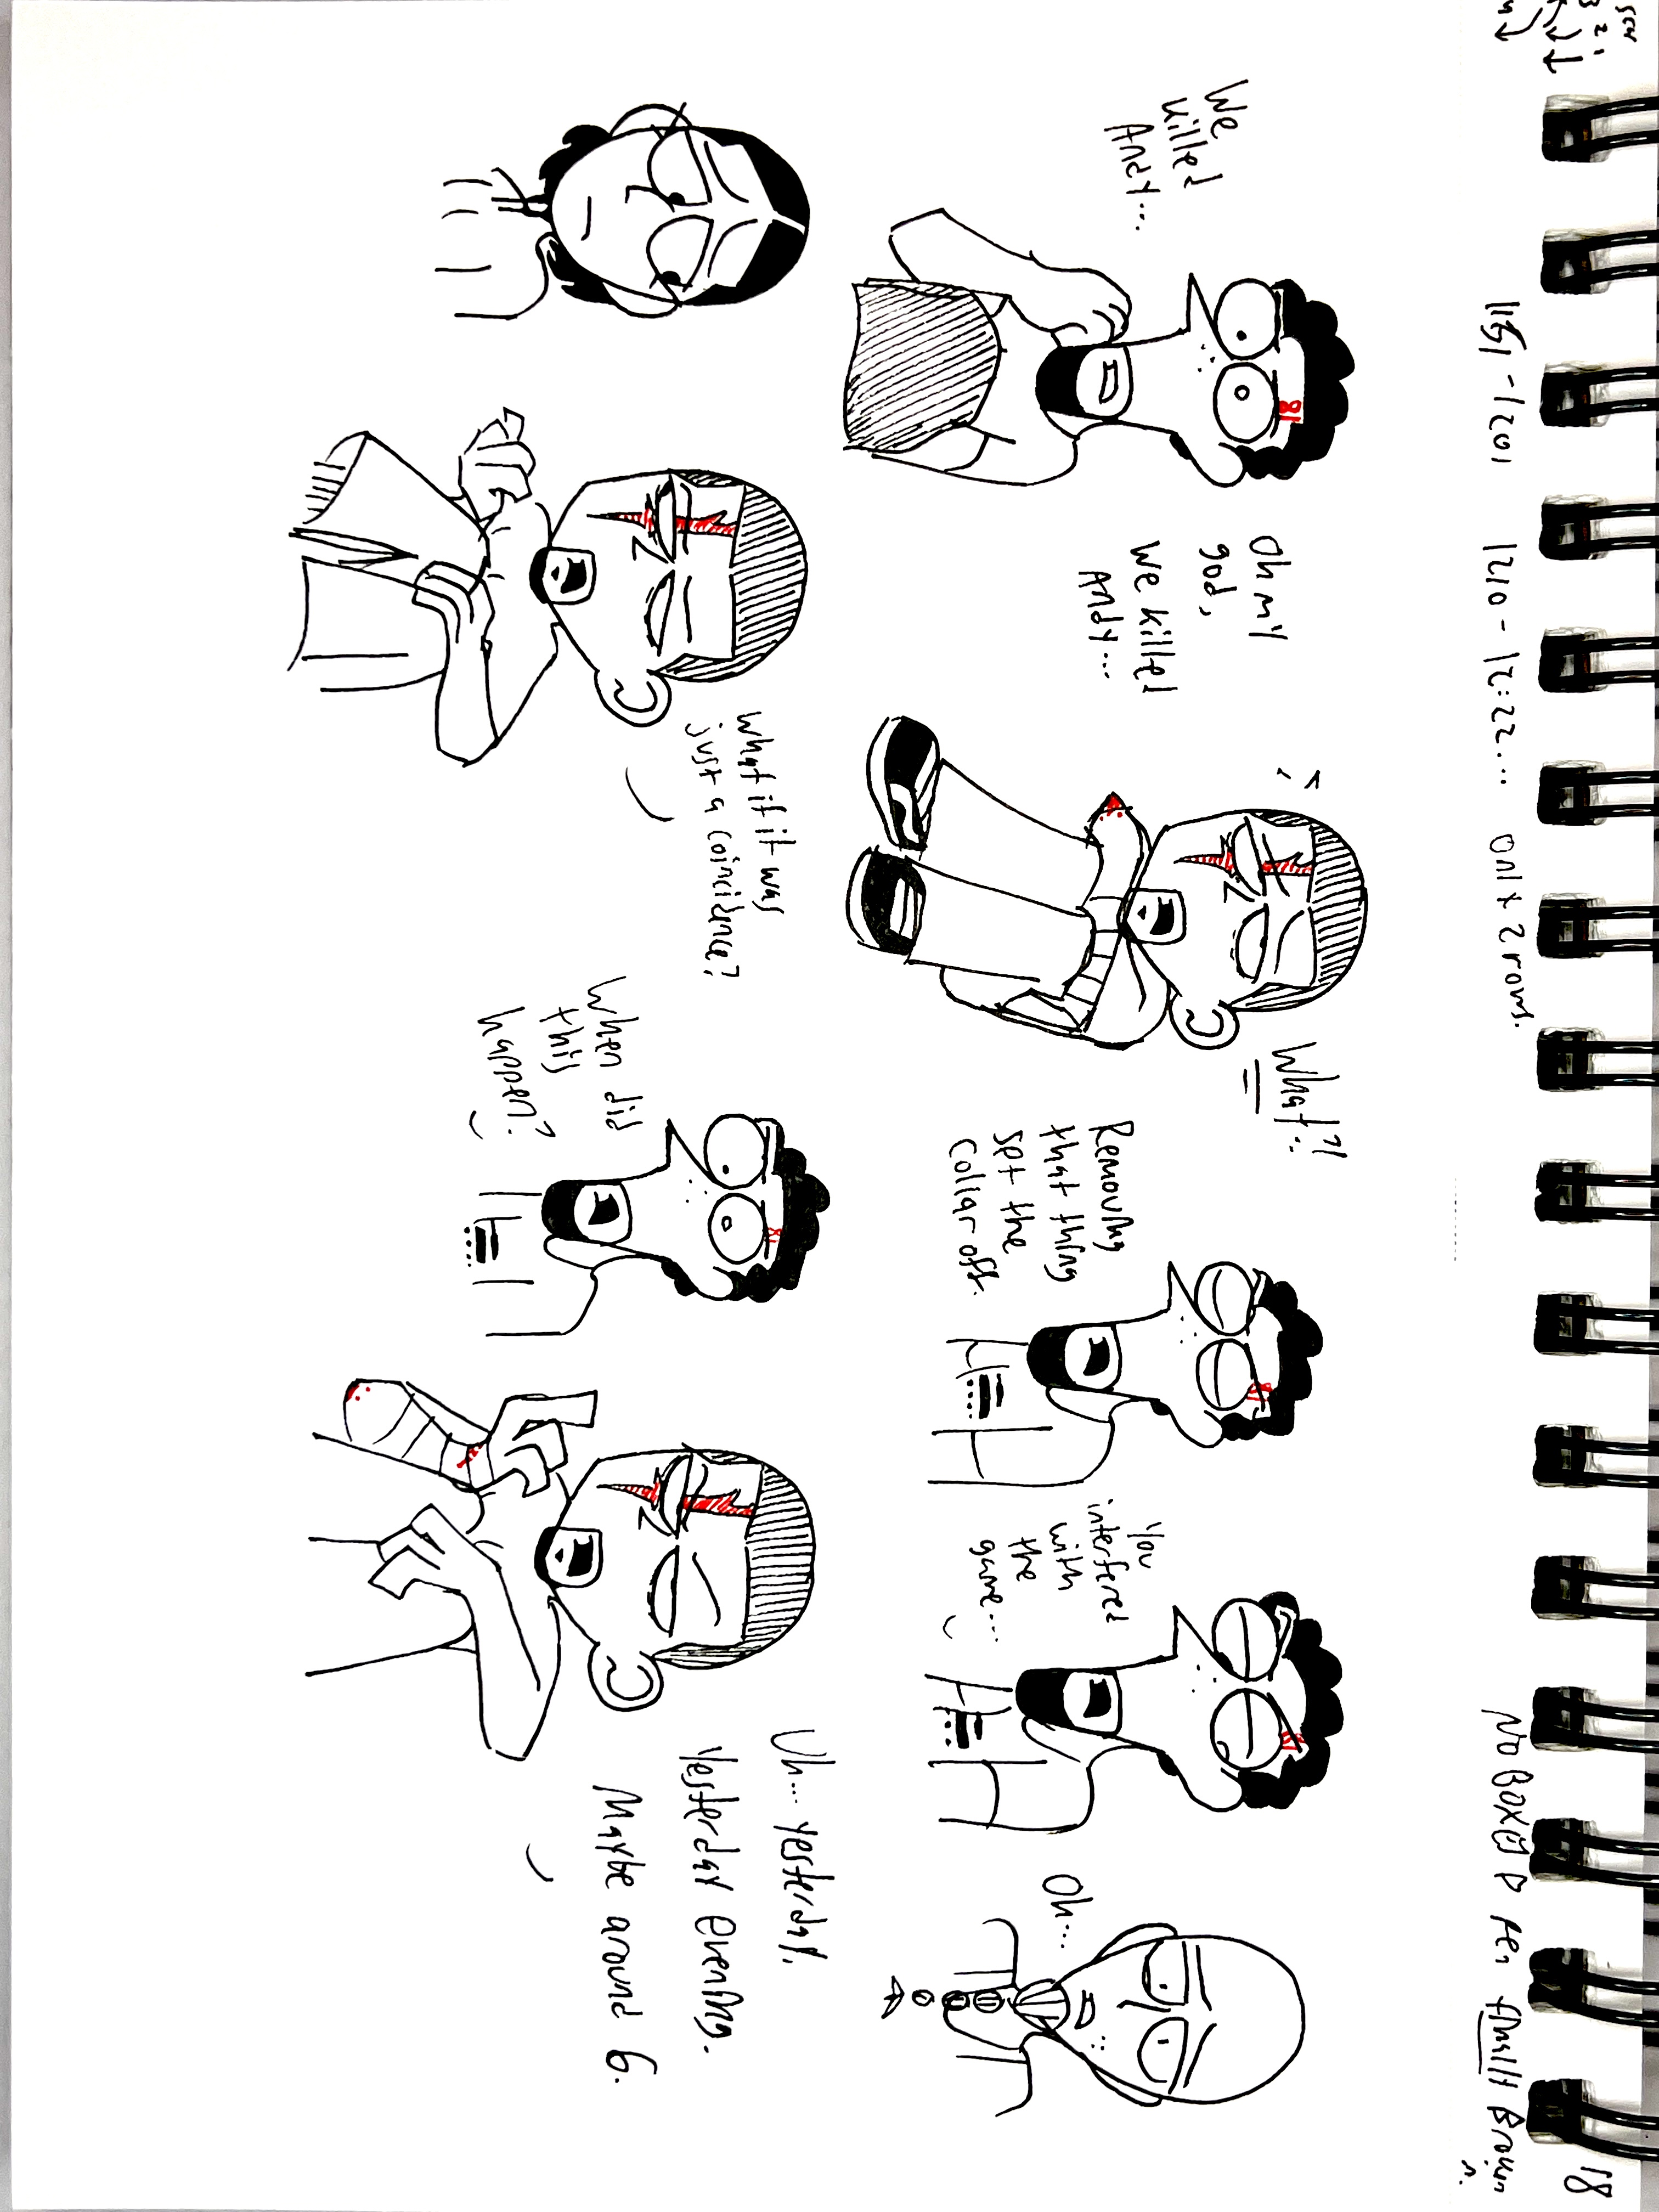 scar
3 2 1
4
18
1151 - 1201 1210 - 12:22... only 2 rows.
NO BOXES pen finally Broken
We
killed
Andy...
81
Oh my
god,
We killed
Andy...
What?!
Removing
that thing
set the
collar off.
81
You
interfered
with
the
game...
81
Oh...
What if it was
just a coincidence?
When did
this
happen?
81
Uh... yesterday.
Yesterday evening.
Maybe around 6.